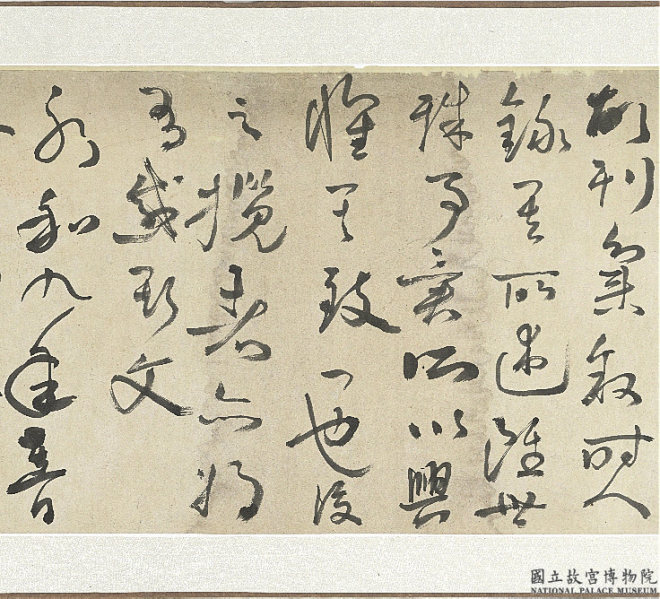 故列敘時人
錄其所述雖世
殊事異所以興
懷其致一也後
之攬者亦將
有感斯文
永和九年暮
國立故宮博物院
NATIONAL PALACE MUSEUM